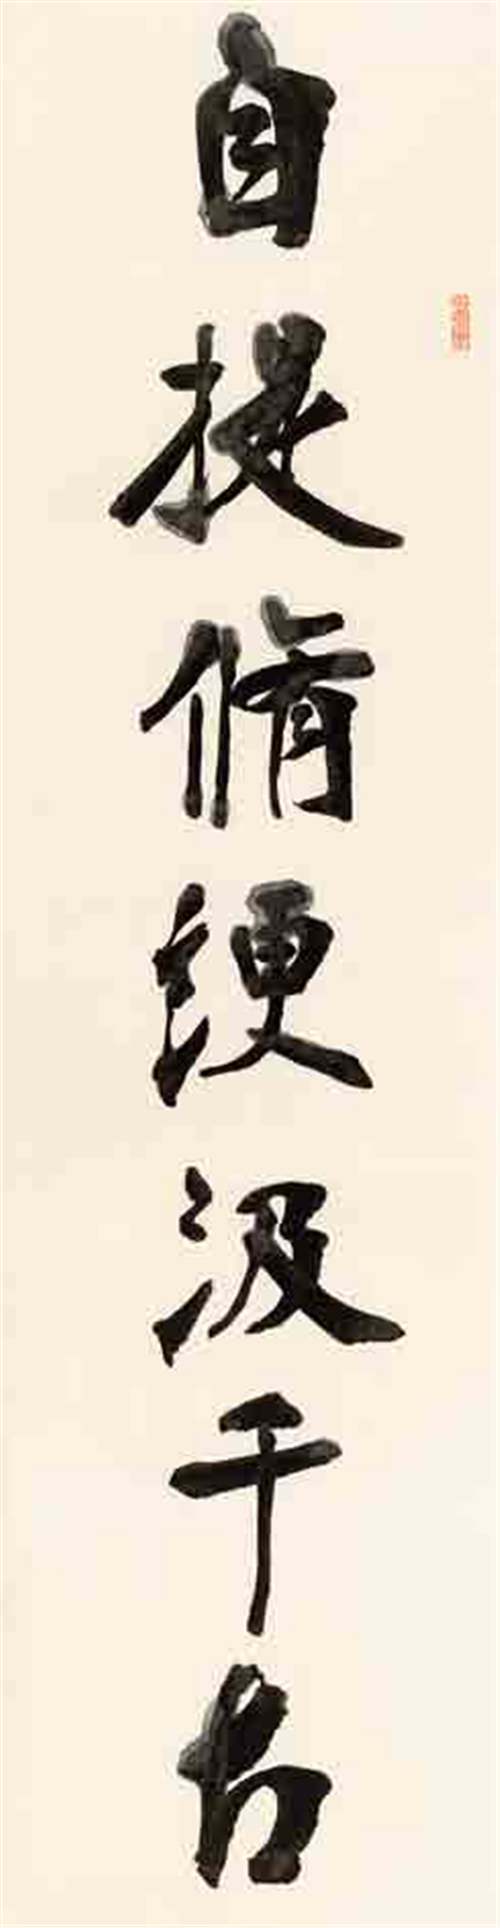 自投脩綆汲千古